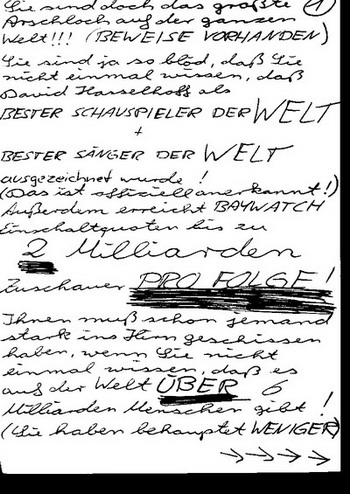 Sie sind doch das größte ①
Arschloch auf der ganzen
Welt!!! (BEWEISE VORHANDEN)
Sie sind ja so blöd, daß Sie
nicht einmal wissen, daß
David Hasselhoff als
BESTER SCHAUSPIELER DER WELT
+
BESTER SÄNGER DER WELT
ausgezeichnet wurde!
(Das ist officiell anerkannt!)
Außerdem erreicht BAYWATCH
Einschaltquoten bis zu
2 Milliarden
Zuschauer PRO FOLGE!
Ihnen muß schon jemand
stark ins Hirn geschissen
haben, wenn Sie nicht
einmal wissen, daß es
auf der Welt ÜBER 6
Milliarden Menschen gibt!
(Sie haben behauptet WENIGER)
→→→→